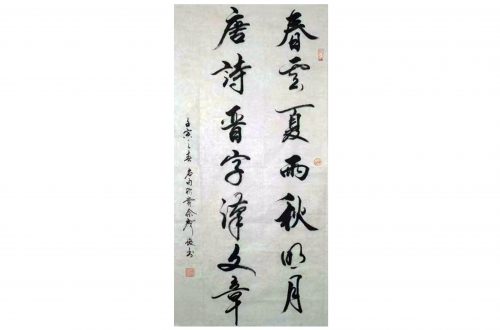 春雲夏雨秋明月
唐詩晋字漢文章
壬寅之春